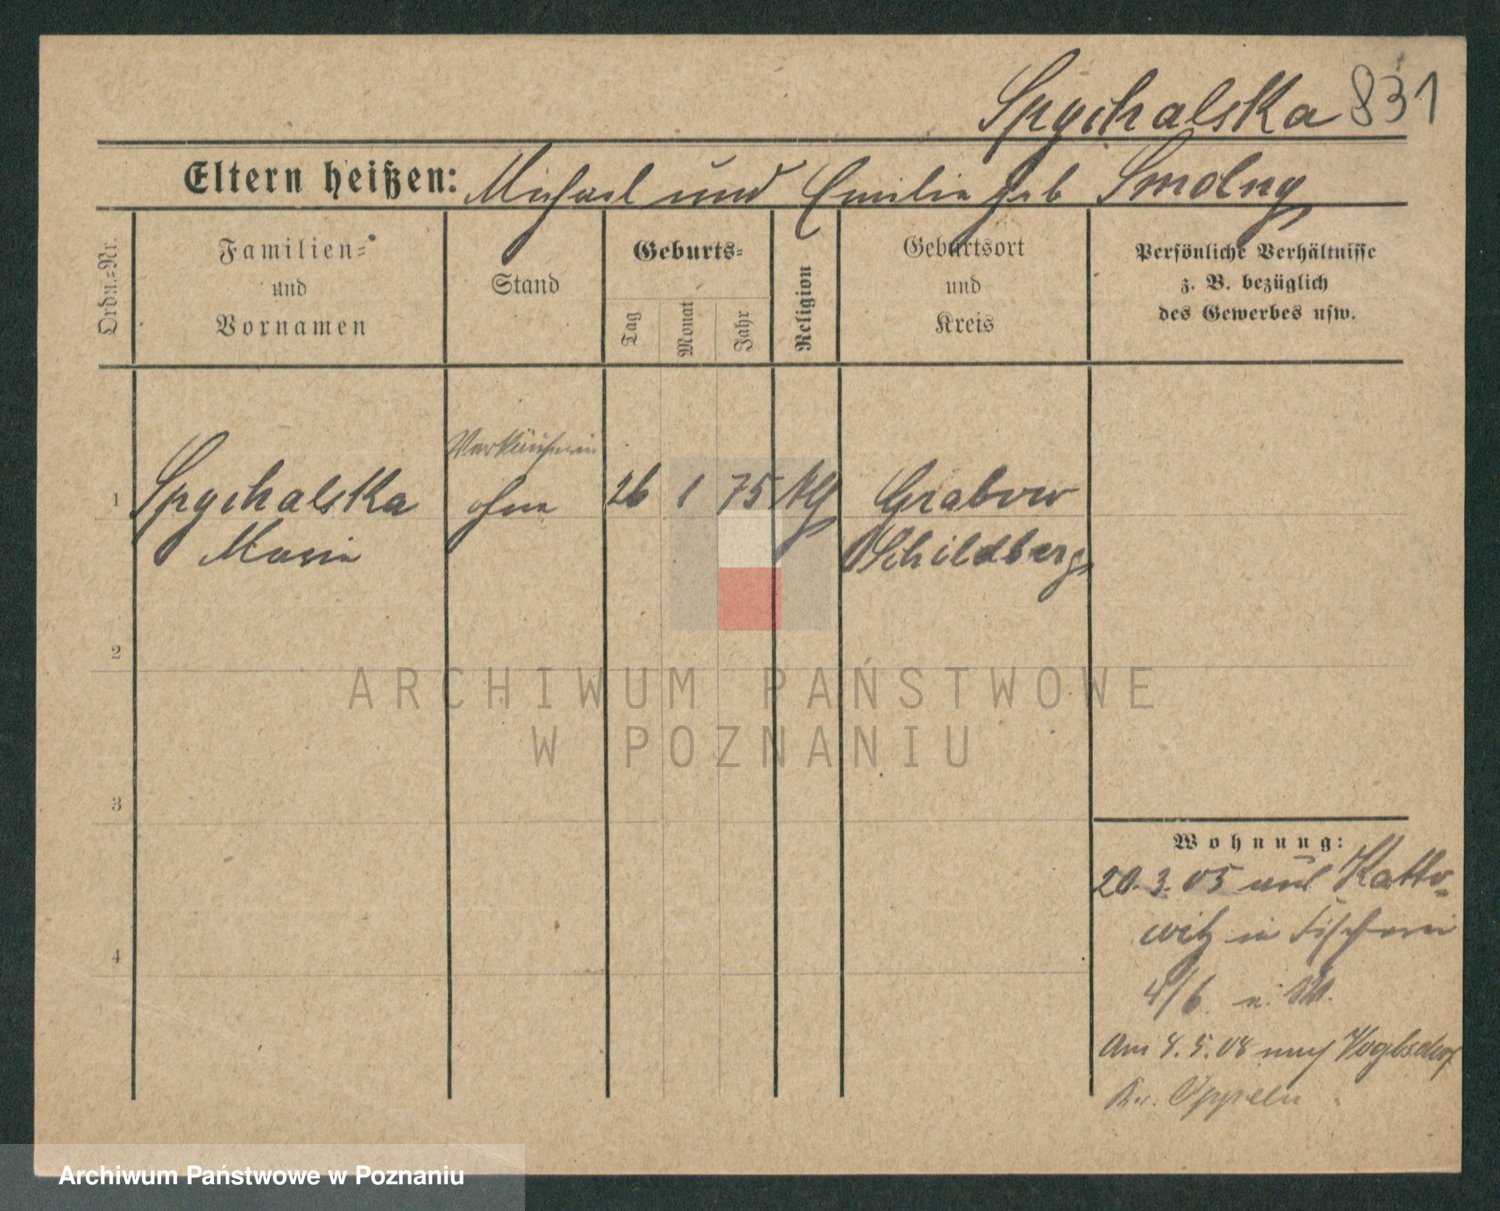 Spychalska 831
Eltern heißen: Michael und Emilie geb Smolny
Ordn.=Nr.
Familien=
und
Vornamen
Stand
Geburts=
Tag
Monat
Jahr
Religion
Geburtsort
und
Kreis
Persönliche Verhältnisse
z. B. bezüglich
des Gewerbes usw.
Verkäuferin
1 Spychalska ohne 26 1 75 Grabow
Marie Schildberg
2
3
4
Wohnung:
20.3.05 aus Katto=
witz in Fischerei
4/6
Am 4.5.08 nach Vogtsdorf
Kr. Oppeln
ARCHIWUM PAŃSTWOWE
W POZNANIU
Archiwum Państwowe w Poznaniu